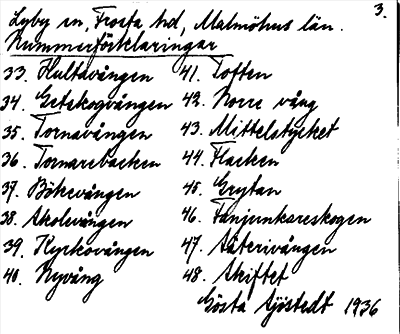 3.
Lyby sn, Frosta hd, Malmöhus län.
Nummerförklaringar
33. Hultavången 41. Toften
34. Getskogvången 42. Norre vång
35. Tornavången 43. Mittelstycket
36. Tornarebacken 44. Flacken
37. Bökevången 45. Grytan
38. Skolevången 46. Fanjunkareskogen
39. Kyrkovången 47. Säterivången
40. Nyvång 48. Skiftet
Gösta Sjöstedt 1936